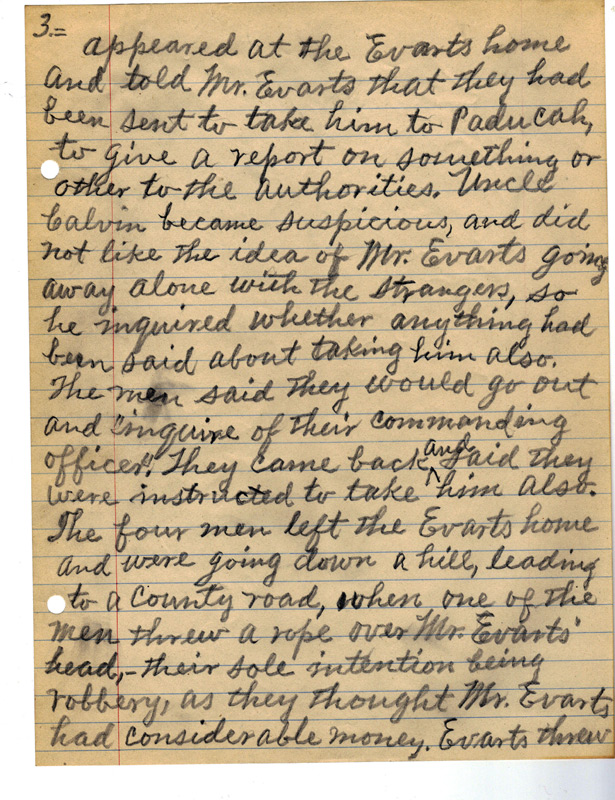 3.=
appeared at the Evarts home
and told Mr. Evarts that they had
been sent to take him to Paducah,
to give a report on something or
other to the authorities. Uncle
Calvin became suspicious, and did
not like the idea of Mr. Evarts going
away alone with the strangers, so
he inquired whether anything had
been said about taking him also.
The men said they would go out
and "inquire of their commanding
officer". They came back and said they
were instructed to take him also.
The four men left the Evarts home
and were going down a hill, leading
to a County road, when one of the
men threw a rope over Mr. Evarts'
head, - their sole intention being
robbery, as they thought Mr. Evarts
had considerable money. Evarts threw